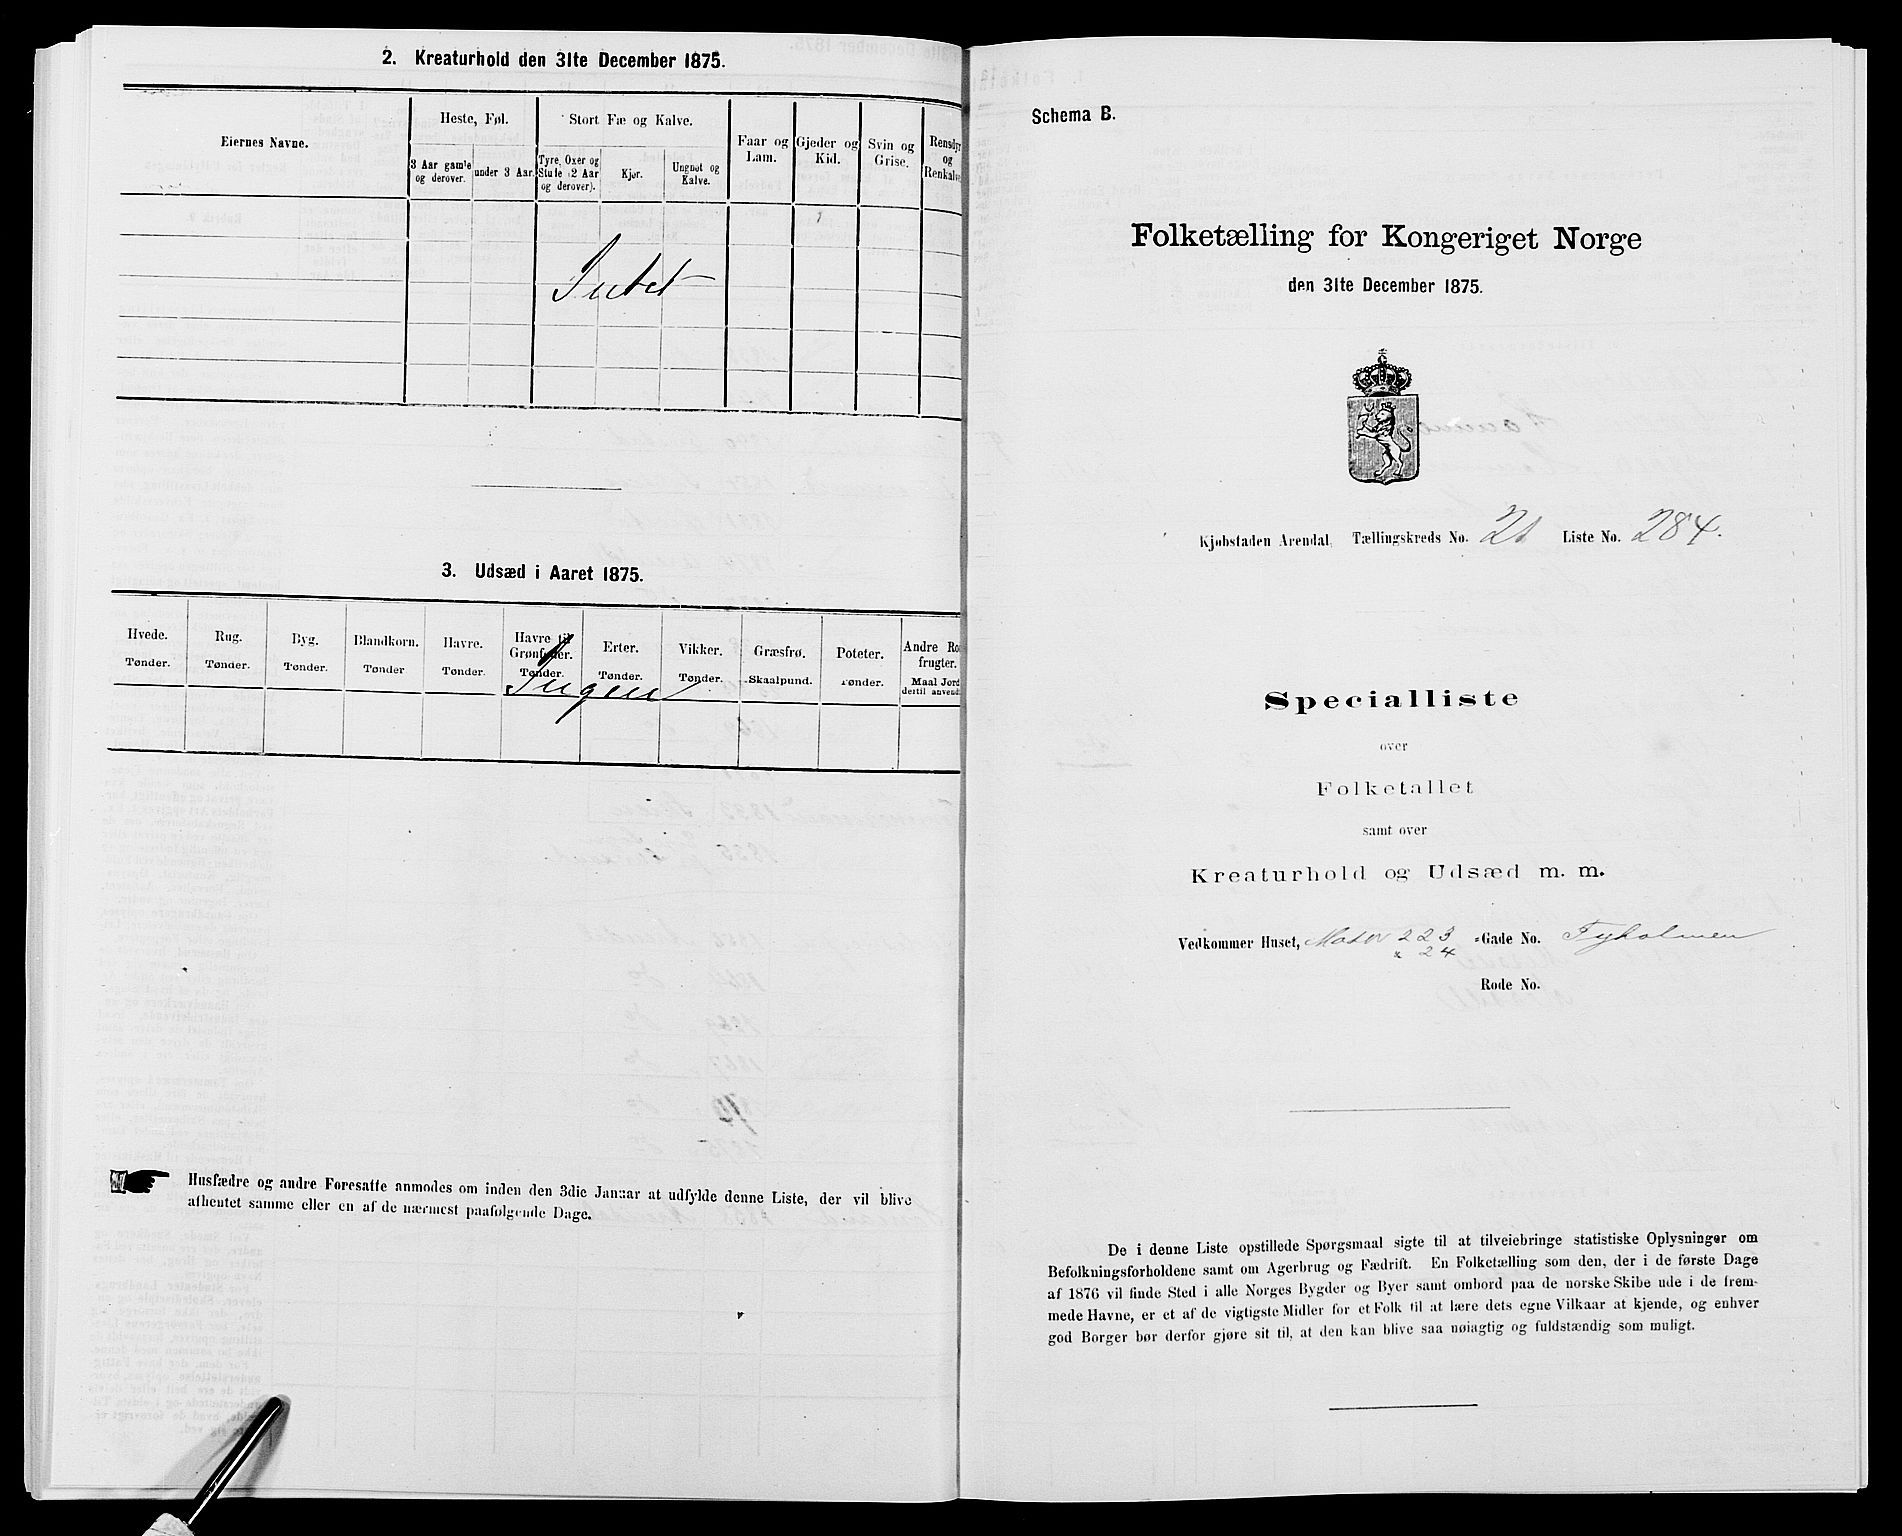 2. Kreaturhold den 31te December 1875.
Eiernes Navne.
Heste, Føl.
3 Aar gamle og derover.
under 3 Aar.
Stort Fæ og Kalve.
Tyre, Oxer og Stude (2 Aar og derover).
Kjør.
Ungnøt og Kalve.
Faar og Lam.
Gjeder og Kid.
Svin og Grise.
Rensdyr og Renkalve
Intet
3. Udsæd i Aaret 1875.
Hvede. Tønder.
Rug. Tønder.
Byg. Tønder.
Blandkorn. Tønder
Havre. Tønder.
Havre til Grønfoder. Tønder.
Erter. Tønder.
Vikker. Tønder.
Græsfrø. Skaalpund.
Poteter. Tønder.
Andre Ro frugter. Maal Jord dertil anvend
Ingen
Husfædre og andre Foresatte anmodes om inden den 3die Januar at udfylde denne Liste, der vil blive
afhentet samme eller en af de nærmest paafølgende Dage.
Schema B.
Folketælling for Kongeriget Norge
den 31te December 1875.
Kjøbstaden Arendal, Tællingskreds No. 21 Liste No. 284.
Specialliste
over
Folketallet
samt over
Kreaturhold og Udsæd m. m.
Vedkommer Huset, Matr 223 Gade No. Tyholmen
" 24
Rode No.
De i denne Liste opstillede Spørgsmaal sigte til at tilveiebringe statistiske Oplysninger om
Befolkningsforholdene samt om Agerbrug og Fædrift. En Folketælling som den, der i de første Dage
af 1876 vil finde Sted i alle Norges Bygder og Byer samt ombord paa de norske Skibe ude i de frem-
mede Havne, er et af de vigtigste Midler for et Folk til at lære dets egne Vilkaar at kjende, og enhver
god Borger bør derfor gjøre sit til, at den kan blive saa nøiagtig og fuldstændig som muligt.